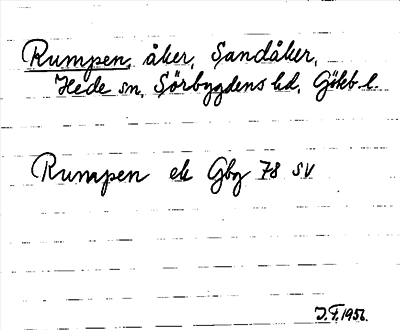 Rumpen, åker, Sandåker,
Hede sn, Sörbygdens hd, Gökb l.
Rumpen ek Gbg 78 SV
J.F. 1956.